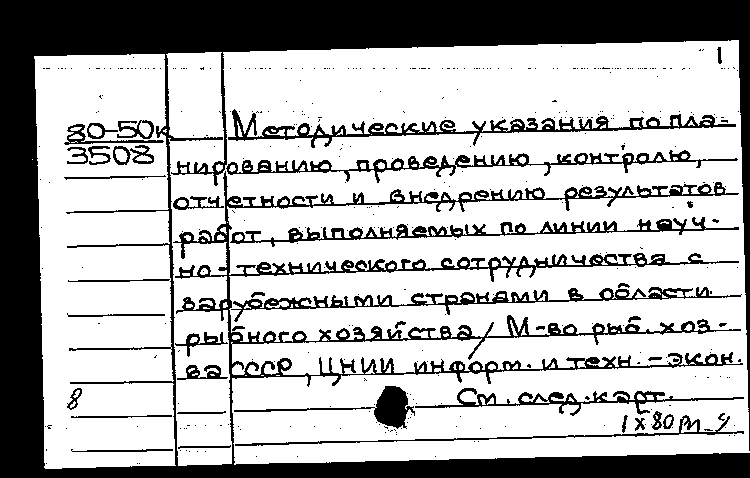 1
80-50к
3508
Методические указания по пла-
нированию, проведению, контролю,
отчетности и внедрению результатов
работ, выполняемых по линии науч-
но-технического сотрудничества с
зарубежными странами в области
рыбного хозяйства/ М-во рыб. хоз-
ва СССР, ЦНИИ информ. и техн.-экон.
8
См. след. карт.
1 х 80